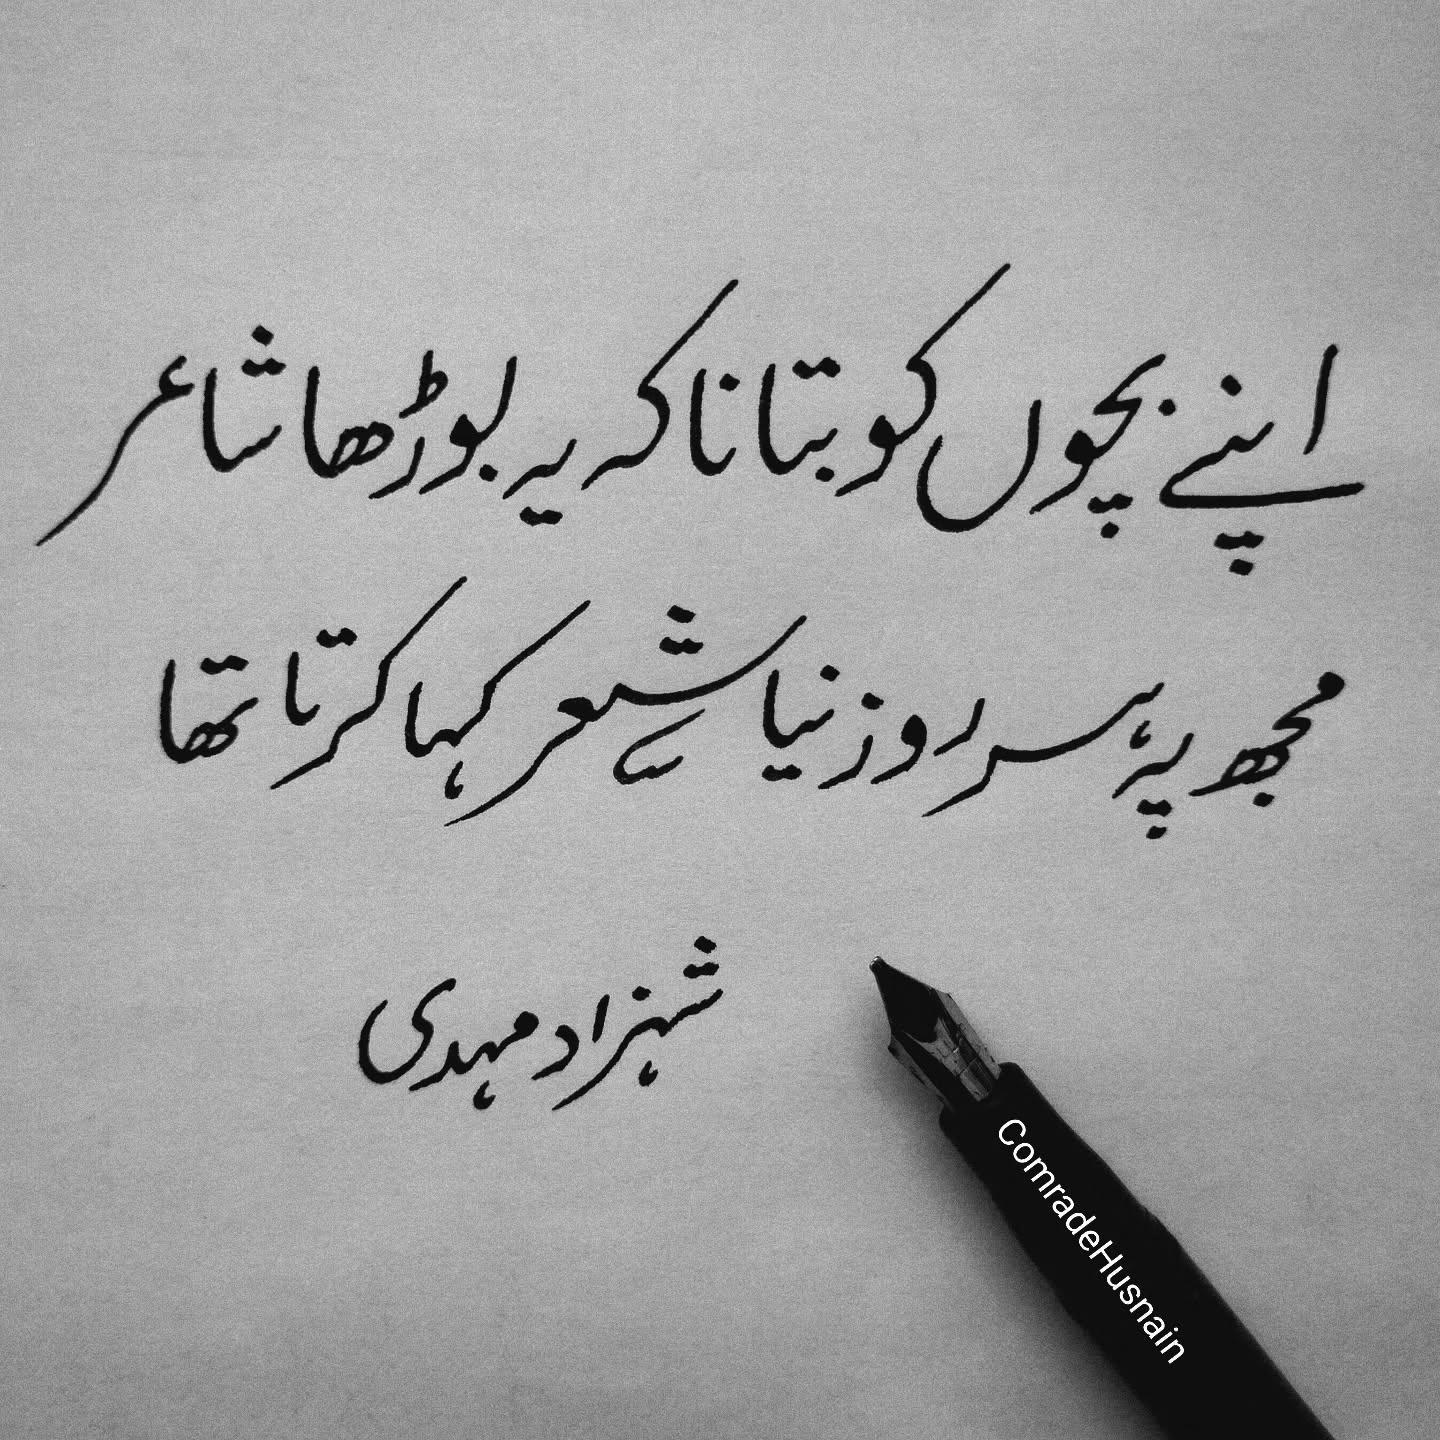 اپنے بچوں کو بتانا کہ یہ بوڑھا شاعر
مجھ پہ ہر روز نیا شعر کہا کرتا تھا
شہزاد مہدی
ComradeHusnain